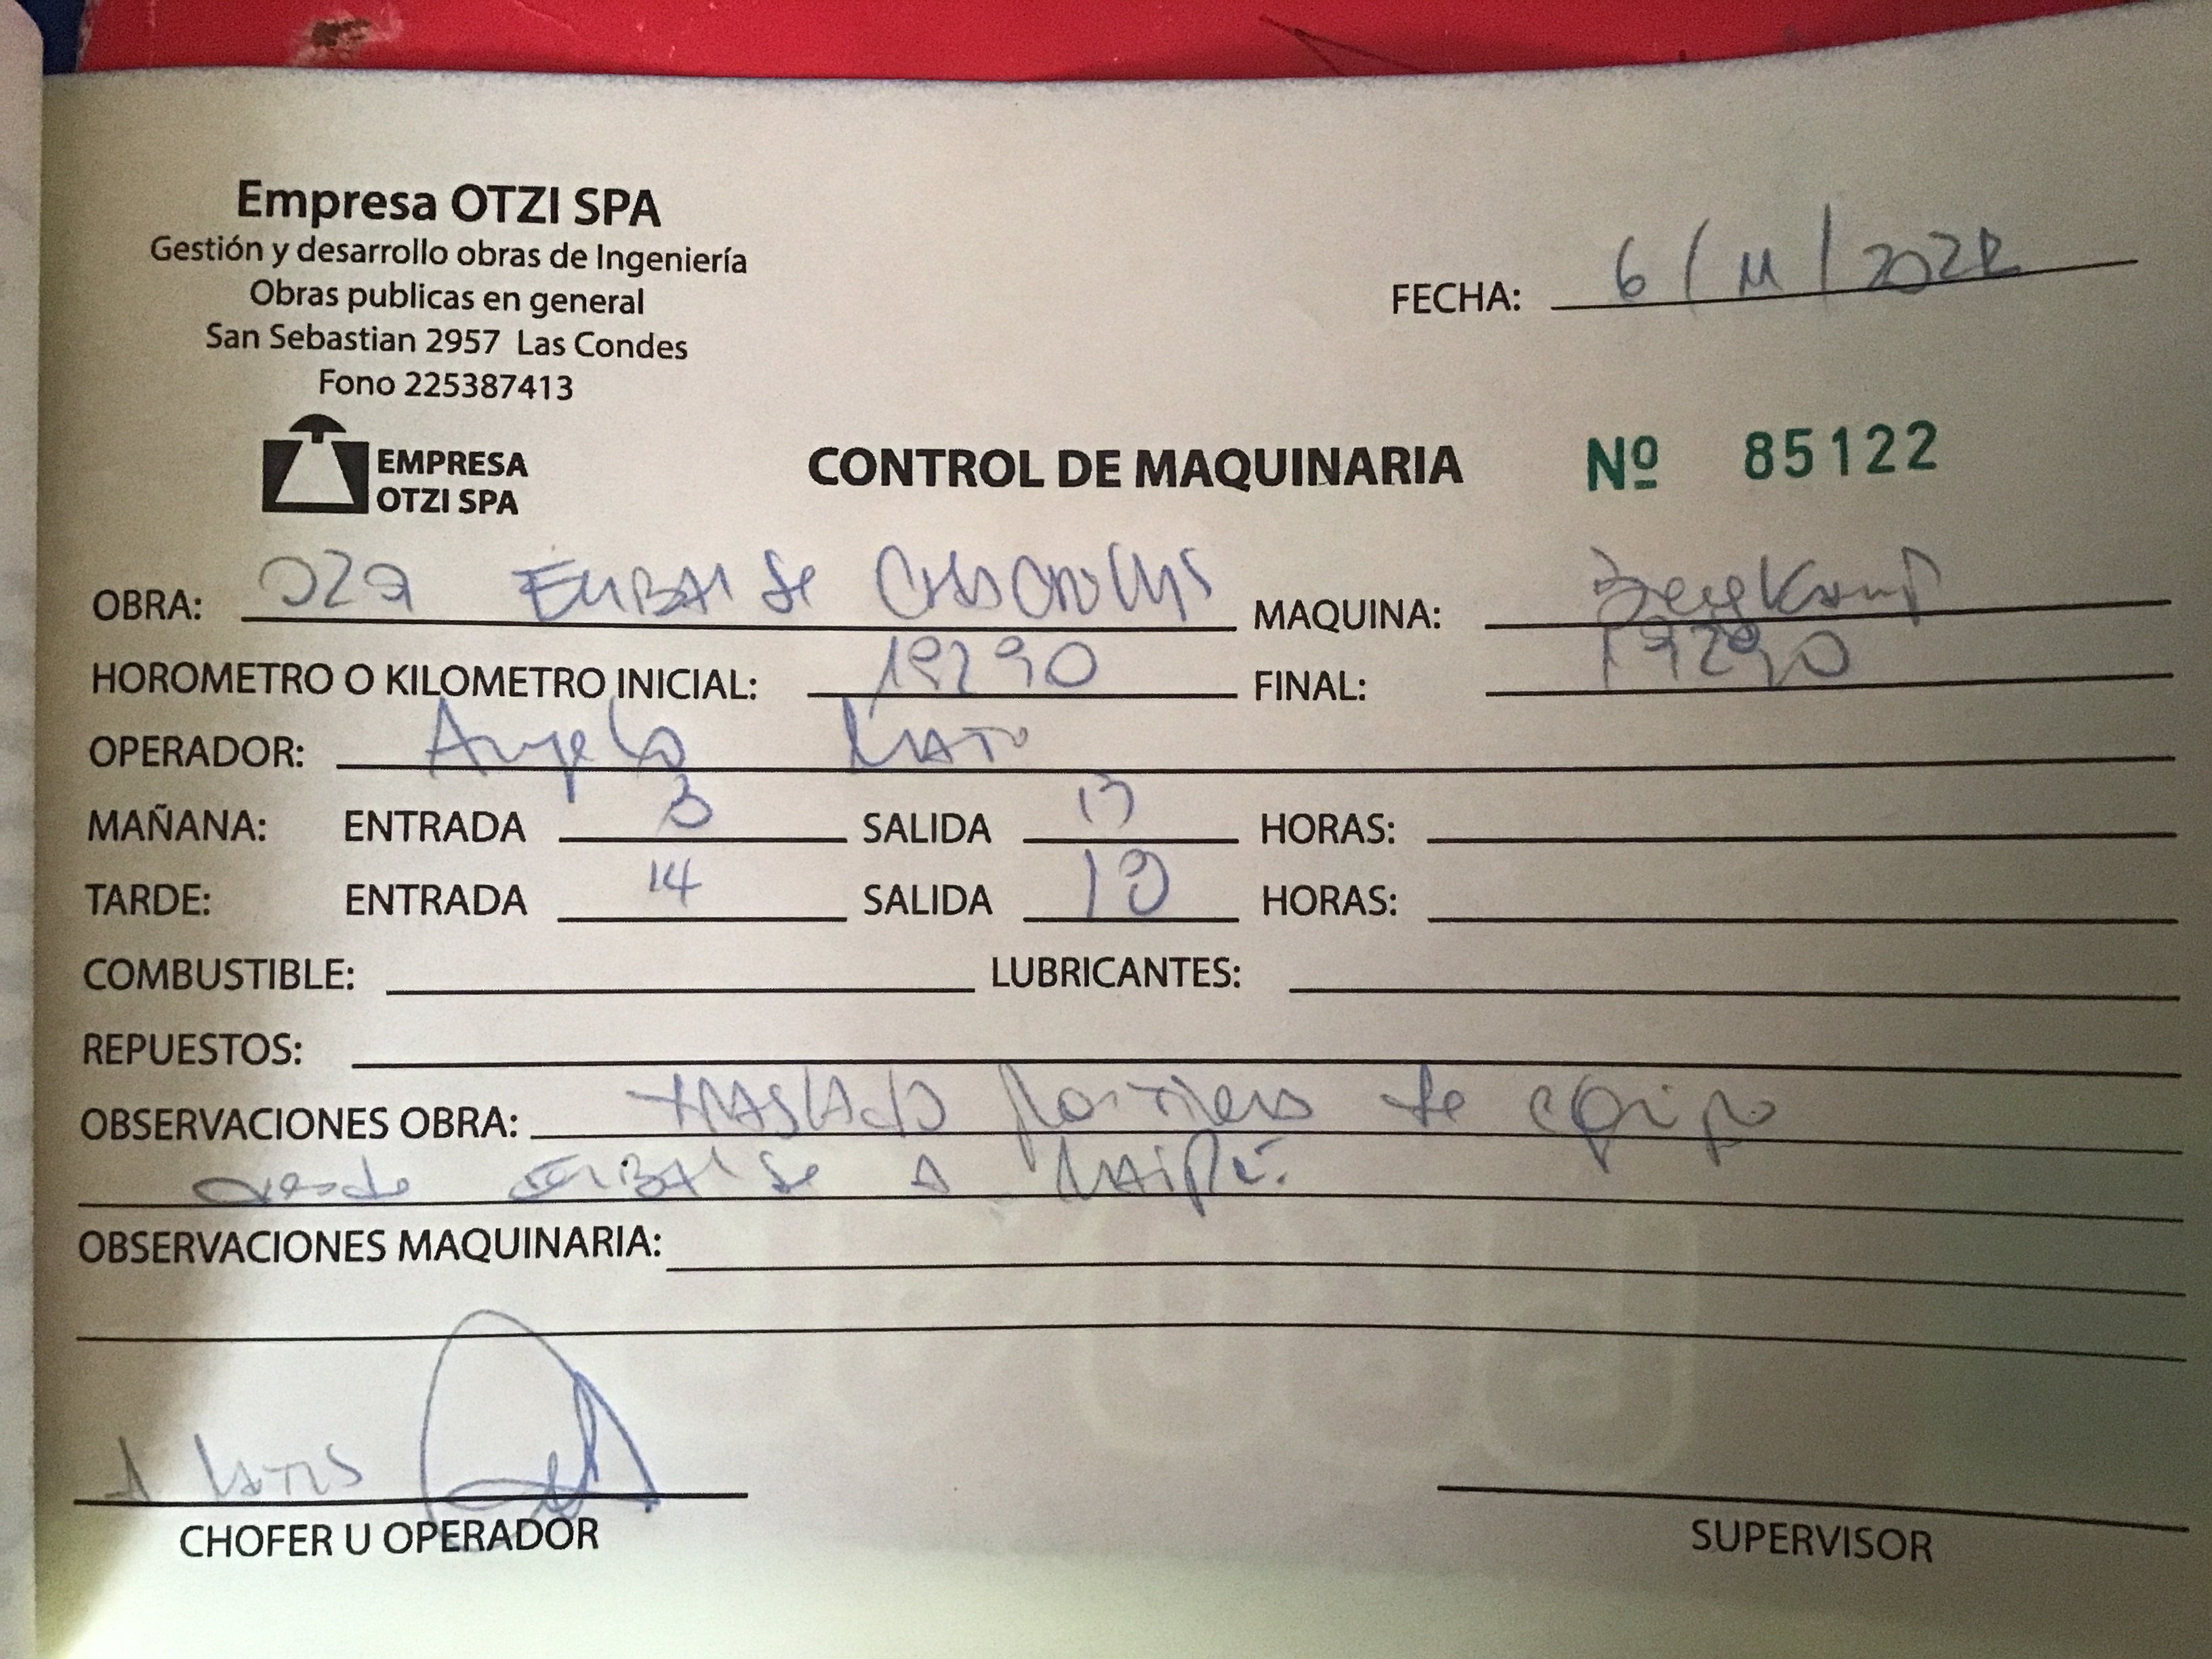 Empresa OTZI SPA
Gestión y desarrollo obras de Ingeniería
Obras publicas en general
San Sebastian 2957 Las Condes
Fono 225387413
FECHA: 6/11/2021
EMPRESA OTZI SPA
CONTROL DE MAQUINARIA Nº 85122
OBRA: 029 MAQUINA:
HOROMETRO O KILOMETRO INICIAL: 19230 FINAL:
OPERADOR: Angelo
MAÑANA: ENTRADA 8 SALIDA 13 HORAS:
TARDE: ENTRADA 14 SALIDA 18 HORAS:
COMBUSTIBLE: LUBRICANTES:
REPUESTOS:
OBSERVACIONES OBRA: traslado de
a Maipú.
OBSERVACIONES MAQUINARIA:
CHOFER U OPERADOR
SUPERVISOR